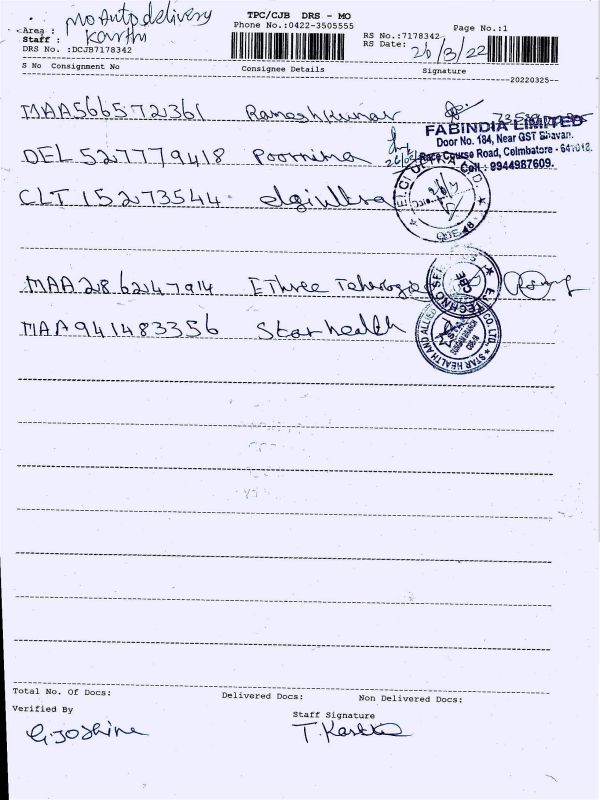 TPC/CJB DRS - MO
Area : No Auto delivery
Phone No.:0422-3505555
Page No.:1
Staff : Karthi
RS No.:7178342
DRS No. :DCJB7178342
RS Date: 26/3/22
S No Consignment No Consignee Details Signature
20220325
MAA566572361 Rameshkumar
FABINDIA LIMITED
Door No. 184, Near GST Bhavan.
DEL 527779418 Poornima
Race Course Road, Coimbatore - 641018.
Cell : 9944987609.
CLT 15273544 elgiultra
MAA 218 62147914 E Three Tehnologie
MAA 941483356 Star health
STAR HEALTH AND ALLIED CO. LTD.
Total No. Of Docs: Delivered Docs: Non Delivered Docs:
Verified By
Staff Signature
G. Joshine T. Karthi